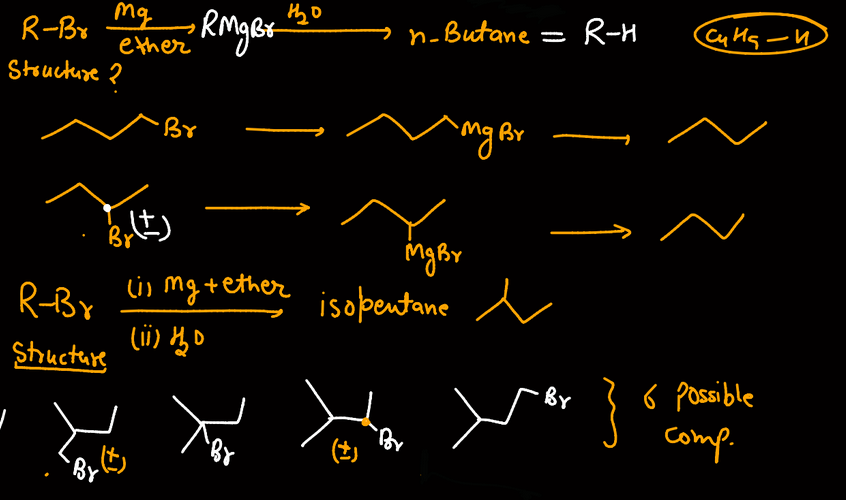 R-Br Mg ether RMgBr H2O n-Butane = R-H C4H9-H
Structure ?
Br MgBr
Br (±) MgBr
R-Br (i) Mg + ether (ii) H2O isopentane
Structure
Br (±) Br (±) Br Br } 6 possible comp.